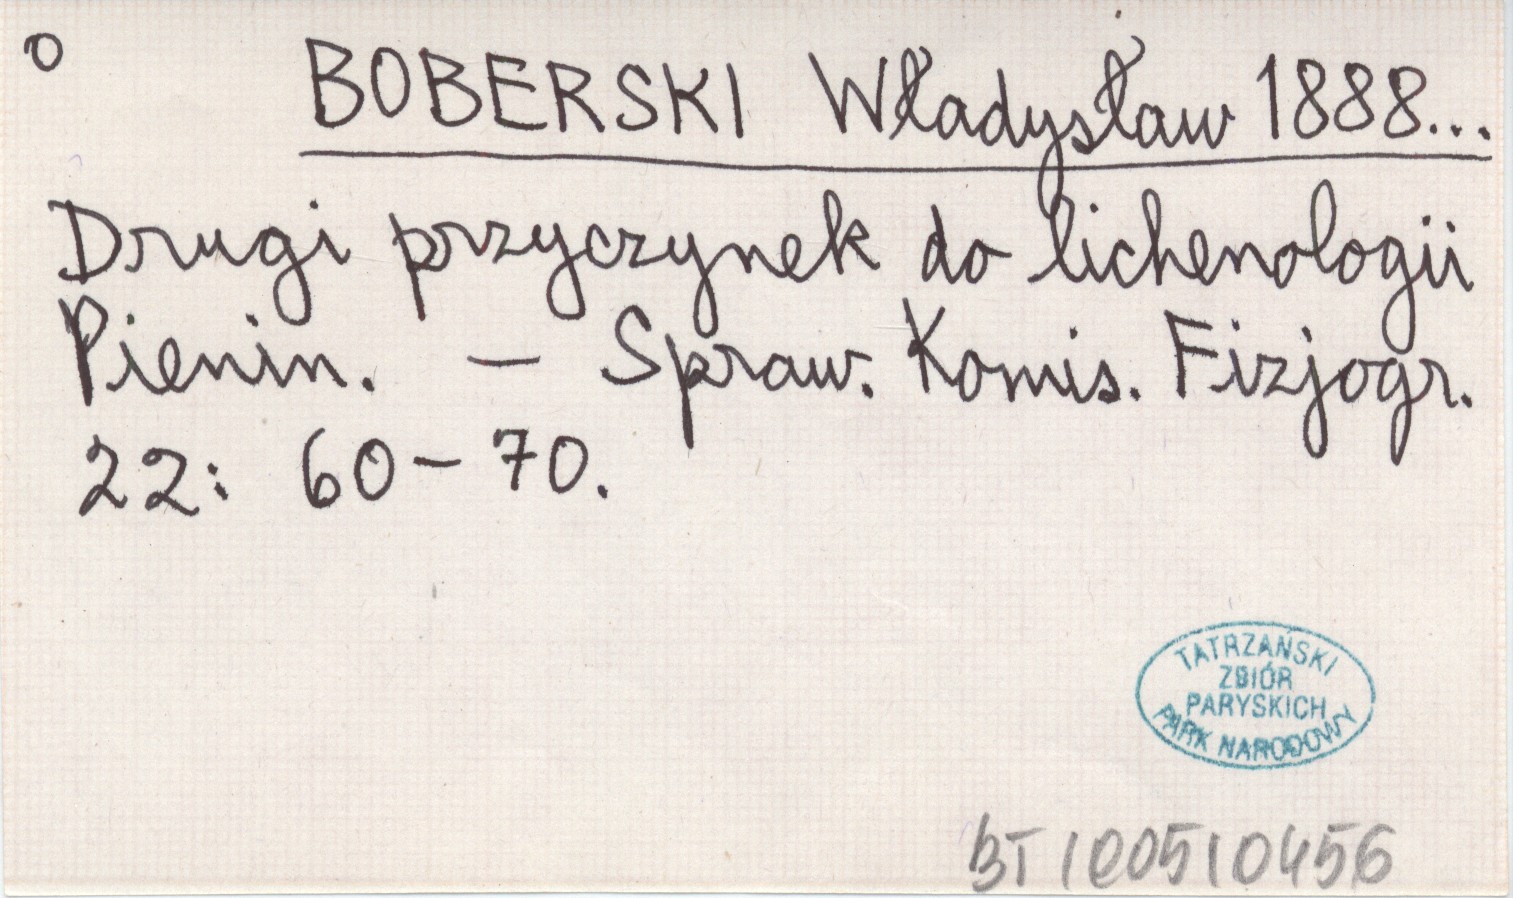 o BOBERSKI Władysław 1888...
Drugi przyczynek do lichenologii
Pienin. — Spraw. Komis. Fizjogr.
22: 60-70.
TATRZAŃSKI
ZBIÓR
PARYSKICH
PARK NARODOWY
BT 100510456